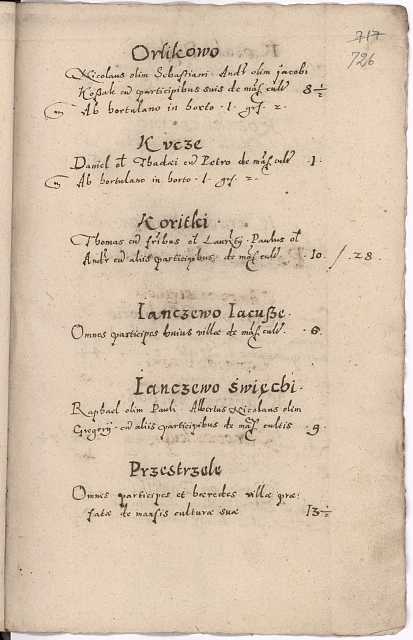 717
726
Orlikowo
Nicolaus olim Sebastiani Andr olim Jacobi
Koßak cū participibus suis de mās. cult 8 1/2
Ab hortulano in horto · 1 · gs. 2 ·
Kvcze
Daniel ol Thadæi cū Petro de mās. cult · 1 ·
Ab hortulano in horto · 1 · gs. 2 ·
Koritki
Thomas cū fribus ol Laurty · Paulus ol
Andr cū aliis participibus de mās. cult · 10 · / · 28 ·
Ianczewo Iacusze ·
Omnes participes huius villæ de mās. cult · 6 ·
Ianczewo święchi ·
Raphael olim Pauli Albertus Nicolaus olim
Gregorij · cū aliis participibus de mās. cultis · 9 ·
Przestrzele
Omnes participes et hæredes villæ præ:
fatæ de mansis culturæ suæ 13 1/2